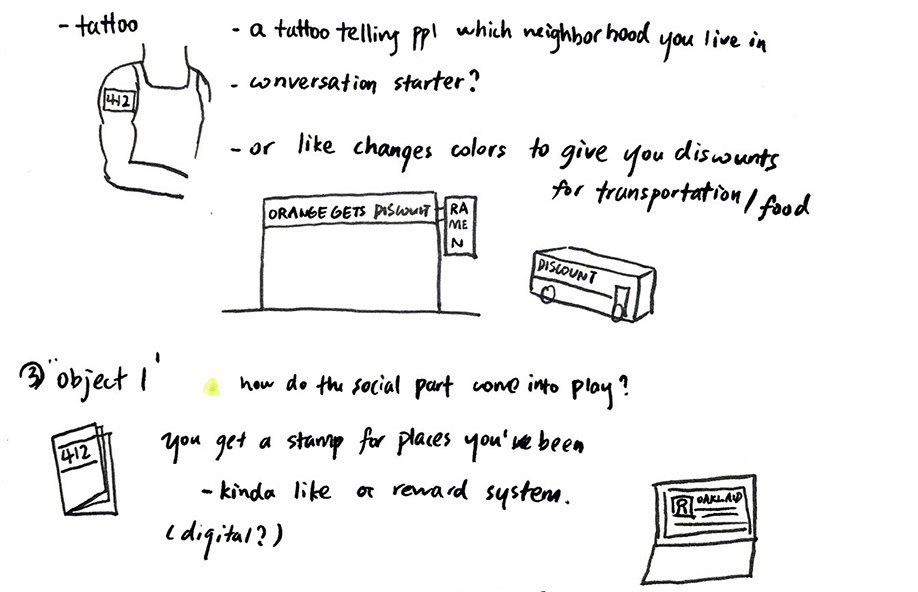 - tattoo
- a tattoo telling ppl which neighborhood you live in
412
- conversation starter?
- or like changes colors to give you discounts
for transportation/food
ORANGE GETS DISCOUNT
RA
ME
N
DISCOUNT
③ "object 1'
how do the social part come into play?
412
you get a stamp for places you've been
- kinda like a reward system.
(digital?)
R OAKLAND